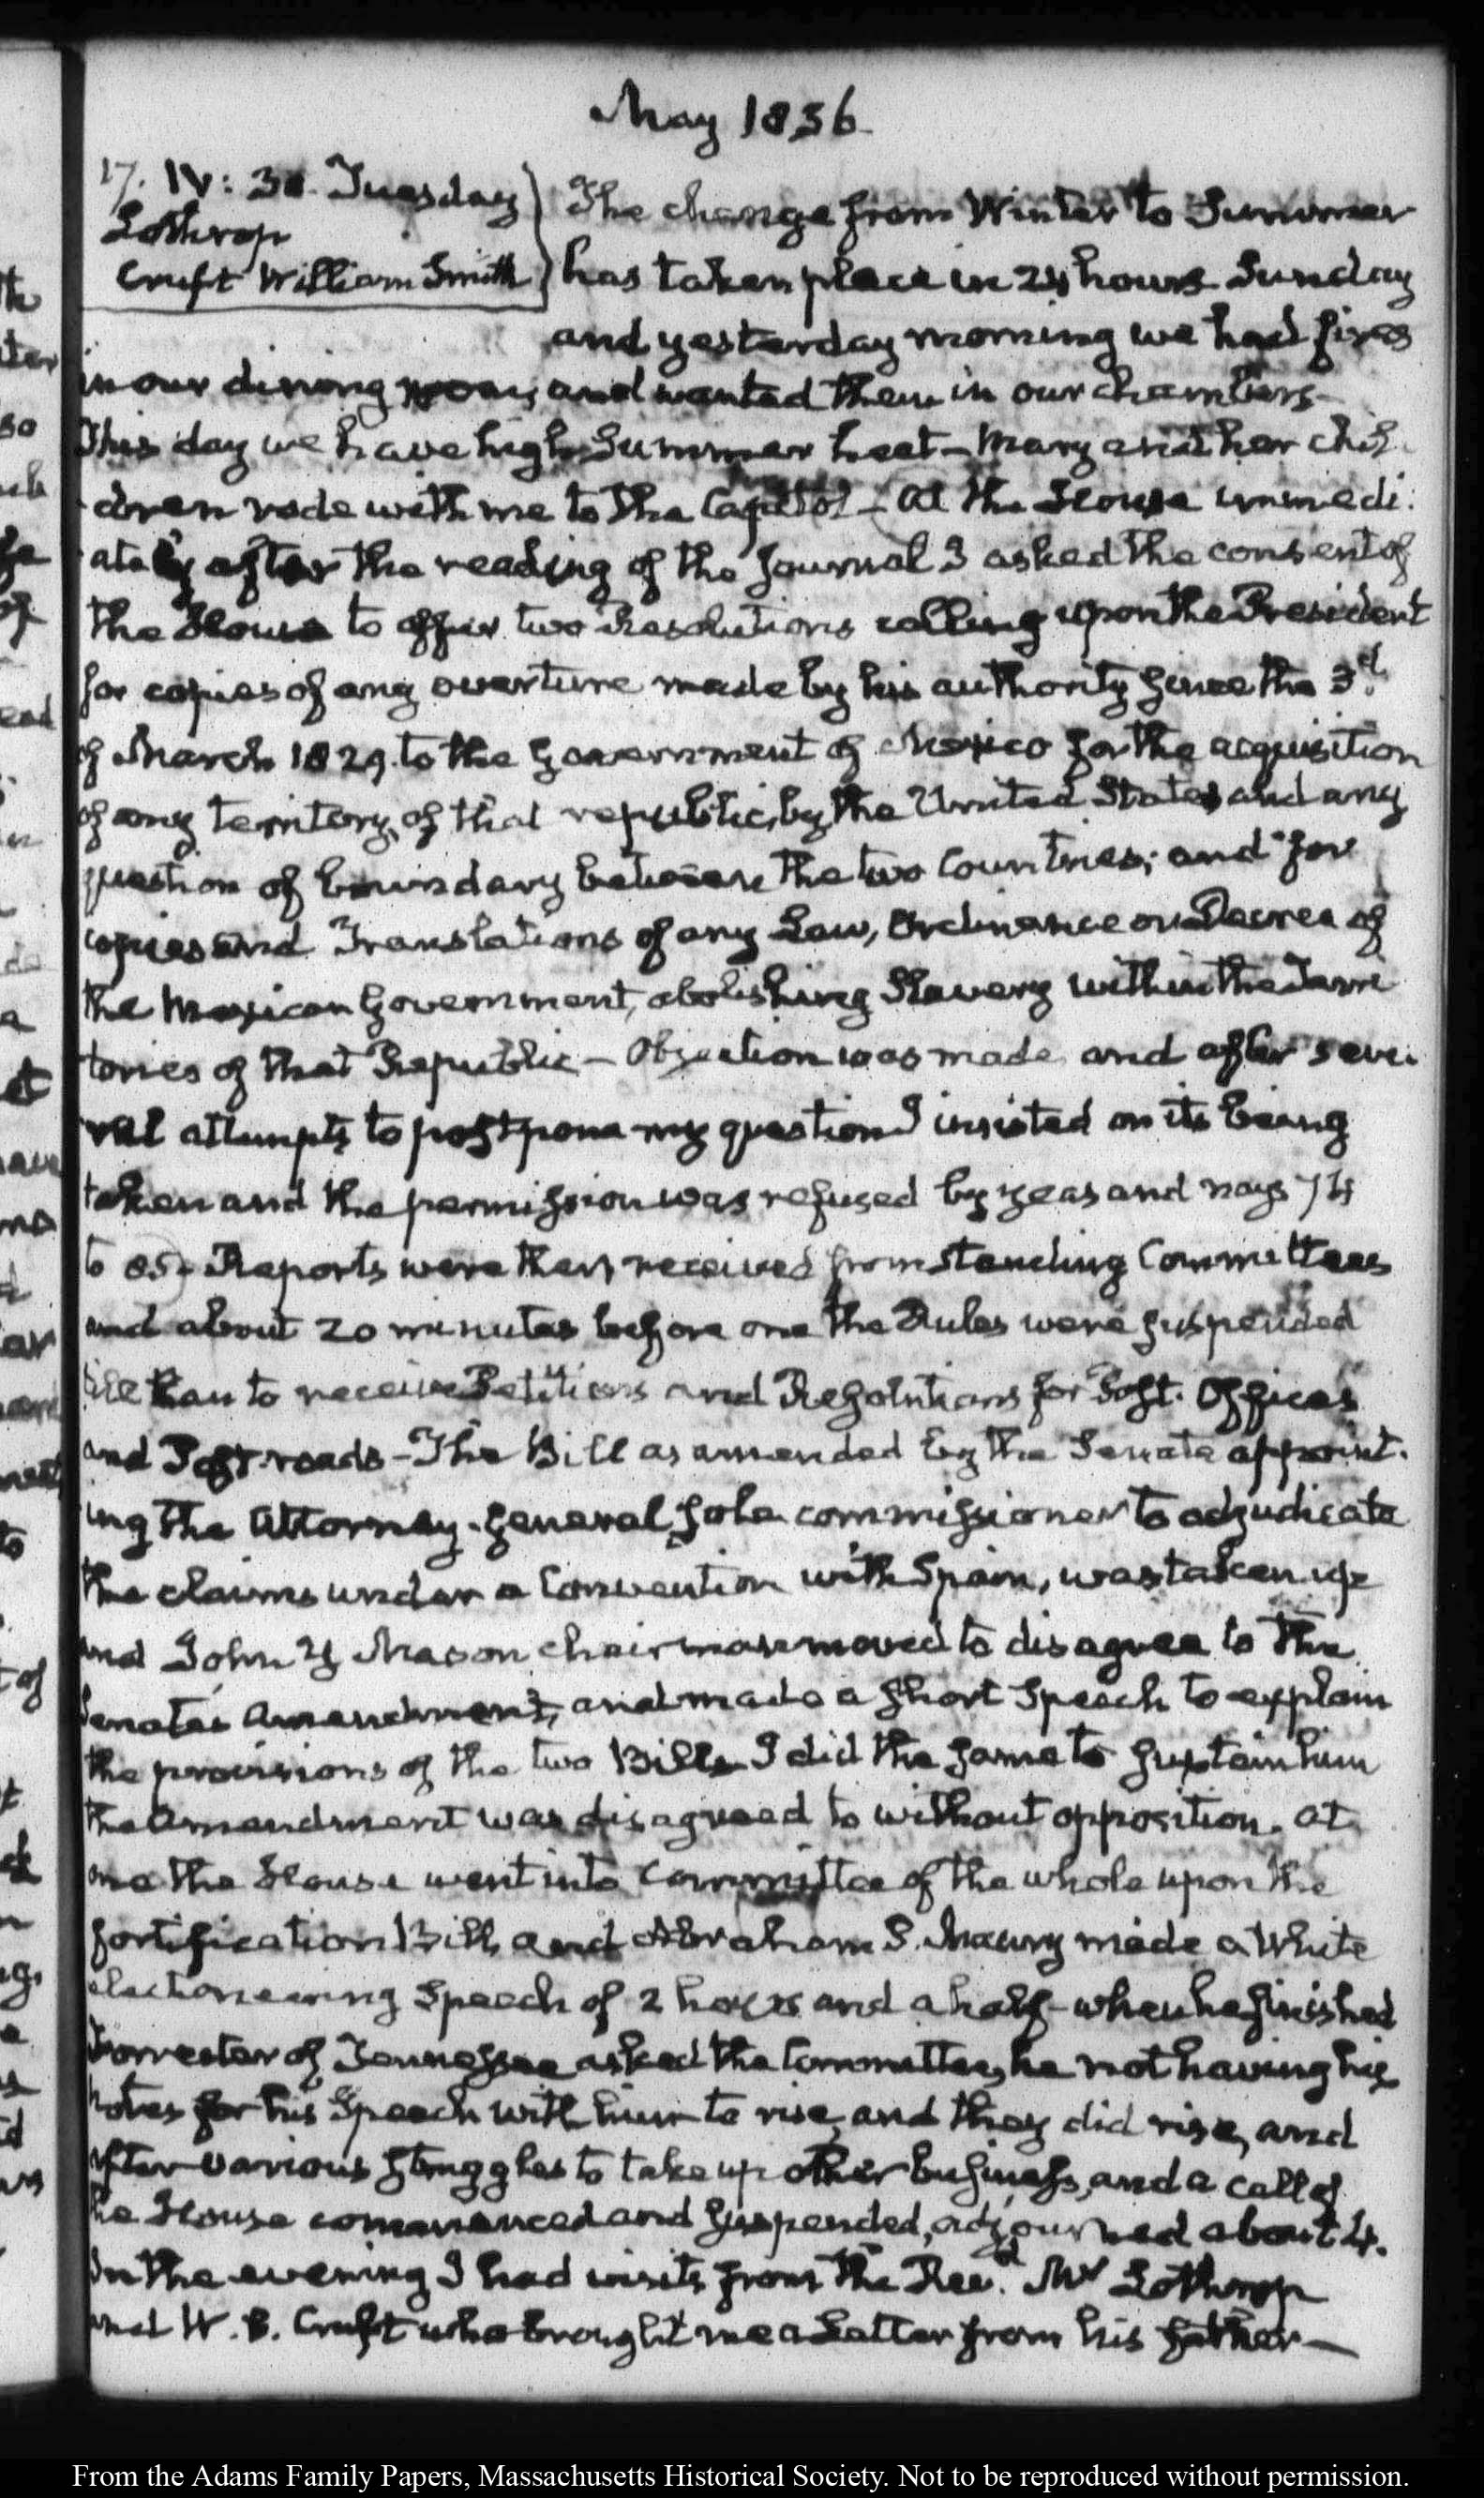 May 1836.
17. IV: 30. Tuesday
Lothrop
Cruft William Smith
The change from Winter to Summer
has taken place in 24 hours. Sunday
and yesterday morning we had fires
in our dining room, and wanted them in our chambers.
This day we have high Summer heat — Mary and her chil-
dren rode with me to the Capitol — At the House immedi-
ately after the reading of the Journal I asked the consent of
the House to offer two Resolutions calling upon the President
for copies of any overture made by his authority since the 3d.
of March 1829. to the Government of Mexico for the acquisition
of any territory of that republic, by the United States and any
question of boundary between the two Countries; and for
copies and Translations of any Law, Ordinance or Decree of
the Mexican Government, abolishing Slavery within the Terri
tories of that Republic — Objection was made and after seve-
ral attempts to postpone my question I insisted on its being
taken and the permission was refused by yeas and nays 74
to 85. Reports were then received from standing Committees
and about 20 minutes before one the Rules were suspended
till to receive Petitions and Resolutions for Post. Offices
and Post-roads — The Bill as amended by the Senate appoint-
ing the Attorney-general sole commissioner to adjudicate
the claims under a Convention with Spain, was taken up
and John Y Mason chairman moved to disagree to the
Senates Amendment, and made a short Speech to explain
the provisions of the two Bills. I did the same to sustain him
the Amendment was disagreed to without opposition. At
one the House went into Committee of the whole upon the
fortification Bill, and Abraham P. Maury made a White
electioneering Speech of 2 hours and a half — when he finished
Forrester of Tennessee asked the Committee, he not having his
notes for his Speech with him to rise, and they did rise, and
after various struggles to take up other business, and a call of
the House commenced and suspended, adjourned about 4.
In the evening I had visits from the Revd. Mr Lothrop
and W. S. Cruft who brought me a Letter from his father —
From the Adams Family Papers, Massachusetts Historical Society. Not to be reproduced without permission.